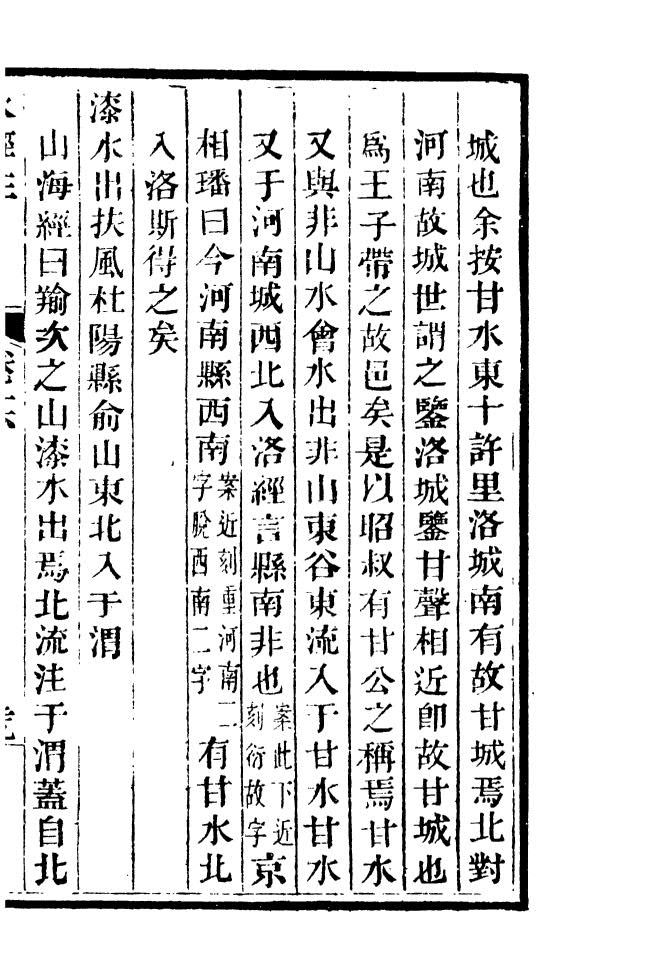 城也余按甘水東十許里洛城南有故甘城焉北對
河南故城世謂之鑒洛城鑒甘聲相近卽故甘城也
爲王子帶之故邑矣是以昭叔有甘公之稱焉甘水
又與非山水會水出非山東谷東流入于甘水甘水
又于河南城西北入洛經言縣南非也案此下近刻衍故字京
相璠曰今河南縣西南案近刻重河南二字脫西南二字有甘水北
入洛斯得之矣
漆水出扶風杜陽縣俞山東北入于渭
山海經曰羭次之山漆水出焉北流注于渭蓋自北